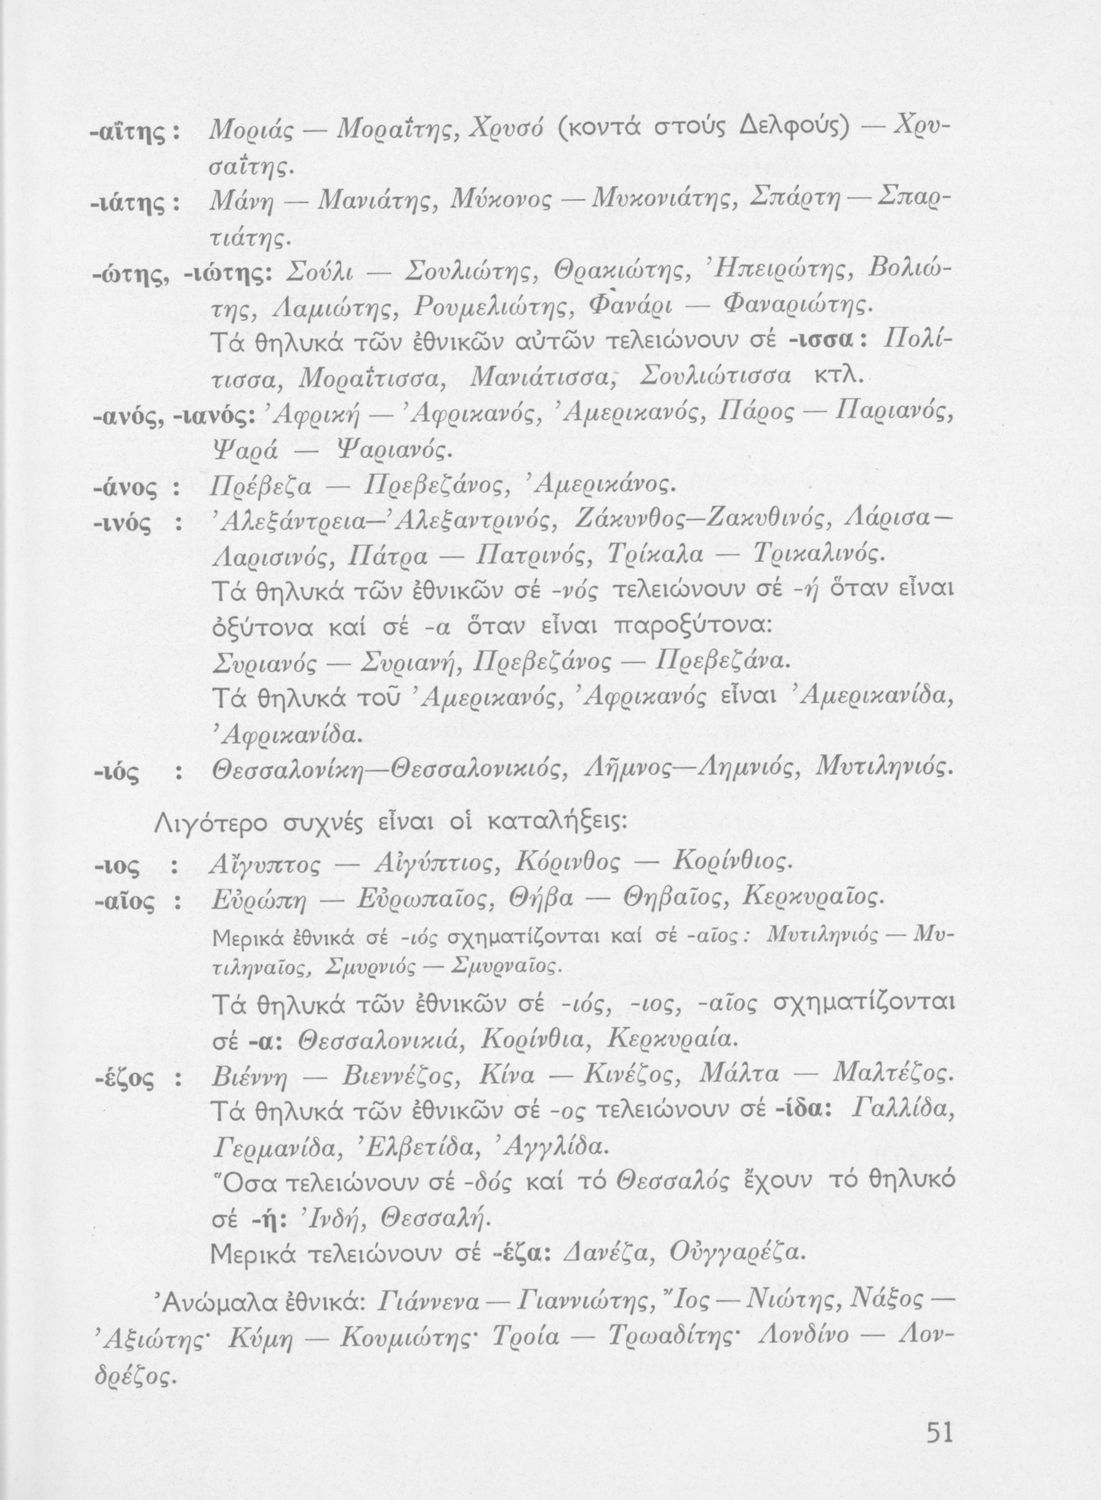 -αΐτης : Μοριάς — Μοραΐτης, Χρυσό (κοντά στούς Δελφούς) — Χρυ-
σαΐτης.
-ιάτης : Μάνη — Μανιάτης, Μύκονος — Μυκονιάτης, Σπάρτη — Σπαρ-
τιάτης.
-ώτης, -ιώτης: Σούλι — Σουλιώτης, Θρακιώτης, Ἠπειρώτης, Βολιώ-
της, Λαμιώτης, Ρουμελιώτης, Φανάρι — Φαναριώτης.
Τά θηλυκά τῶν ἐθνικῶν αὐτῶν τελειώνουν σέ -ισσα : Πολί-
τισσα, Μοραΐτισσα, Μανιάτισσα, Σουλιώτισσα κτλ.
-ανός, -ιανός: Ἀφρική — Ἀφρικανός, Ἀμερικανός, Πάρος — Παριανός,
Ψαρά — Ψαριανός.
-άνος : Πρέβεζα — Πρεβεζάνος, Ἀμερικάνος.
-ινός : Ἀλεξάντρεια—Ἀλεξαντρινός, Ζάκυνθος—Ζακυθινός, Λάρισα—
Λαρισινός, Πάτρα — Πατρινός, Τρίκαλα — Τρικαλινός.
Τά θηλυκά τῶν ἐθνικῶν σέ -νός τελειώνουν σέ -ή ὅταν εἶναι
ὀξύτονα καί σέ -α ὅταν εἶναι παροξύτονα:
Συριανός — Συριανή, Πρεβεζάνος — Πρεβεζάνα.
Τά θηλυκά τοῦ Ἀμερικανός, Ἀφρικανός εἶναι Ἀμερικανίδα,
Ἀφρικανίδα.
-ιός : Θεσσαλονίκη—Θεσσαλονικιός, Λῆμνος—Λημνιός, Μυτιληνιός.
Λιγότερο συχνές εἶναι οἱ καταλήξεις:
-ιος : Αἴγυπτος — Αἰγύπτιος, Κόρινθος — Κορίνθιος.
-αῖος : Εὐρώπη — Εὐρωπαῖος, Θήβα — Θηβαῖος, Κερκυραῖος.
Μερικά ἐθνικά σέ -ιός σχηματίζονται καί σέ -αῖος : Μυτιληνιός — Μυ-
τιληναῖος, Σμυρνιός — Σμυρναῖος.
Τά θηλυκά τῶν ἐθνικῶν σέ -ιός, -ιος, -αῖος σχηματίζονται
σέ -α: Θεσσαλονικιά, Κορίνθια, Κερκυραία.
-έζος : Βιέννη — Βιεννέζος, Κίνα — Κινέζος, Μάλτα — Μαλτέζος.
Τά θηλυκά τῶν ἐθνικῶν σέ -ος τελειώνουν σέ -ίδα: Γαλλίδα,
Γερμανίδα, Ἐλβετίδα, Ἀγγλίδα.
Ὅσα τελειώνουν σέ -δός καί τό Θεσσαλός ἔχουν τό θηλυκό
σέ -ή: Ἰνδή, Θεσσαλή.
Μερικά τελειώνουν σέ -έζα: Δανέζα, Οὐγγαρέζα.
Ἀνώμαλα ἐθνικά: Γιάννενα — Γιαννιώτης, Ἴος — Νιώτης, Νάξος —
Ἀξιώτης· Κύμη — Κουμιώτης· Τροία — Τρωαδίτης· Λονδίνο — Λον-
δρέζος.
51